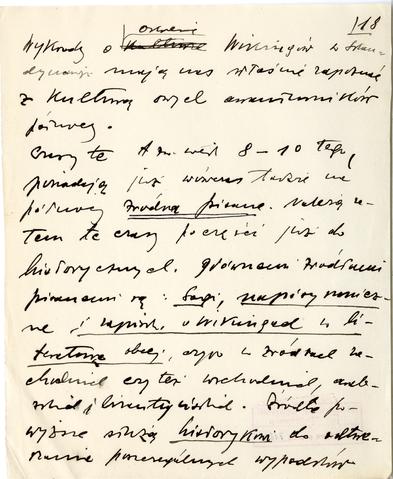 18
Osłonie
Wykłady o Kulturze Wikingów w Skan-
dynawji mają nas właśnie zapoznać
z Kulturą owych awanturników
północy.
Czasy te A m. wiek 8 – 10 tego,
posiadają już wówczas także na
północy źródła pisane. należą za-
tem te czasy poczęści już do
historycznych. głównemi źródłami
pisanemi są: Sagi, napisy runicz-
ne i zapiski o Wikingach w li-
teraturze obcej, czyto w źródłach za-
chodnich czy też wschodnich, arab-
skich i bizantyńskich. Źródła po-
wyższe służą historykom do odtwo-
rzenia poszczególnych wypadków